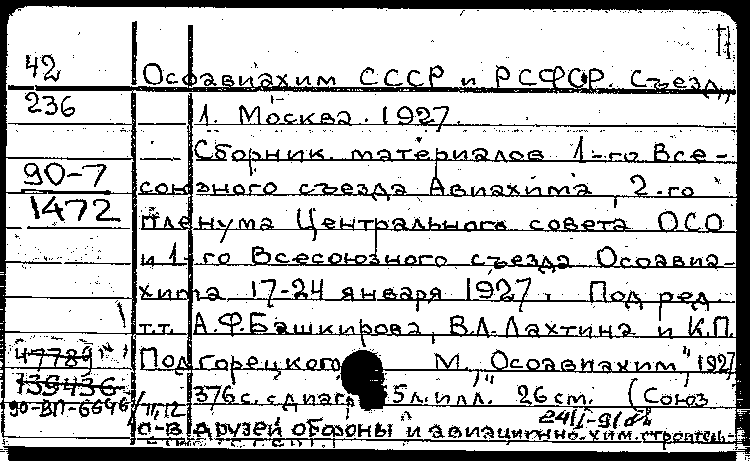 42
Осоавиахим СССР и РСФСР. Съезд,
236
1. Москва. 1927.
Сборник материалов 1-го Все-
90-7
союзного съезда Авиахима, 2-го
1472
пленума Центрального совета ОСО
и 1-го Всесоюзного съезда Осоавиа-
хима 17-24 января 1927. Под ред.
т.т. А.Ф.Башкирова, В.Л.Лахтина и К.П.
47789
Подгорецкого М., "Осоавиахим", 1927
139436
376 с. с диагр 5 л. илл. 26 см. (Союз
90-ВП-6696
о-в друзей обороны и авиационно-хим. строитель-